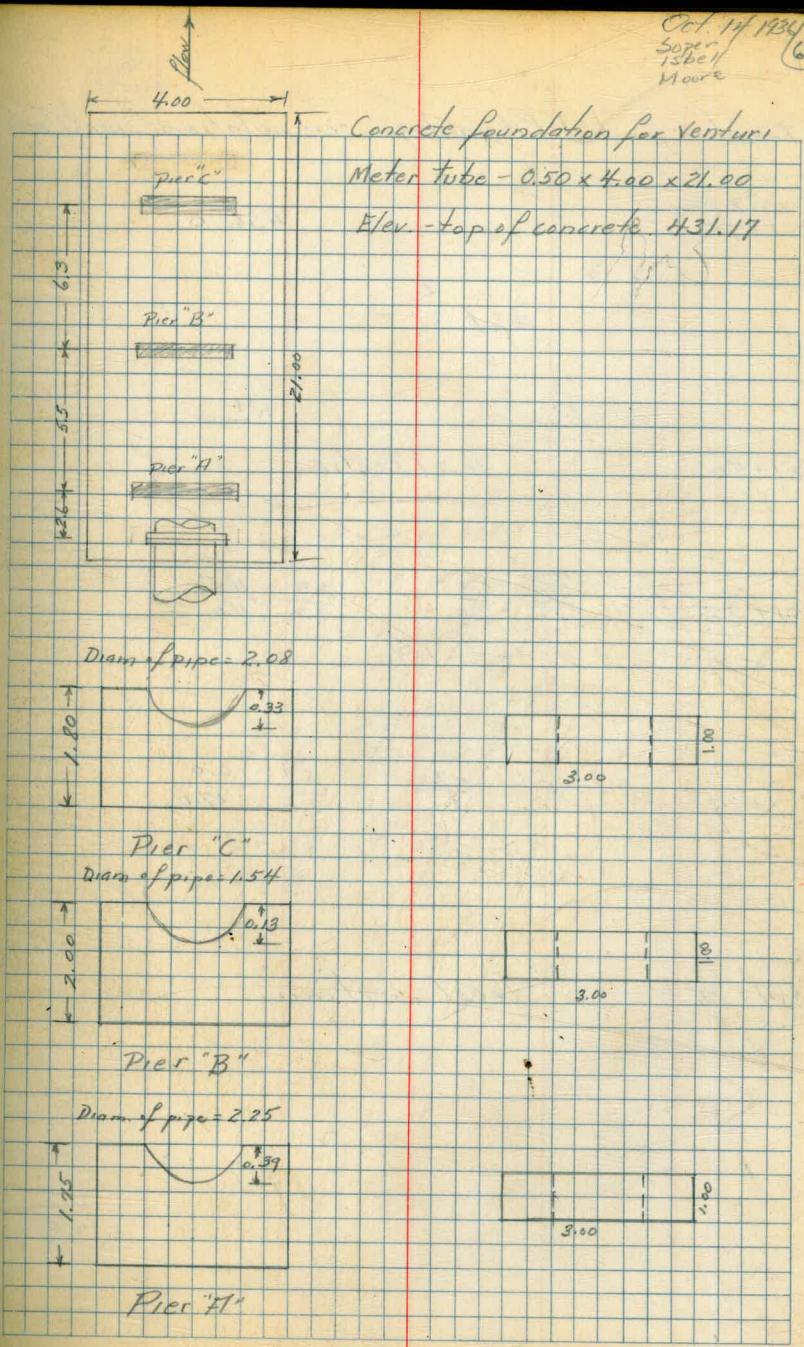 Oct. 14 1934
6
Soper
Isbell
Moore
Flow
4.00
Concrete foundation for Venturi
Meter tube - 0.50 x 4.00 x 21.00
Elev. - top of concrete. 431.17
Pier "C"
6.3
Pier "B"
21.00
5.5
Pier "A"
2.6
Diam of pipe = 2.08
1.80
0.33
1.00
3.00
Pier "C"
Diam of pipe = 1.54
2.00
0.13
3.00
Pier "B"
Diam of pipe = 2.25
1.75
0.39
1.00
3.00
Pier "A"